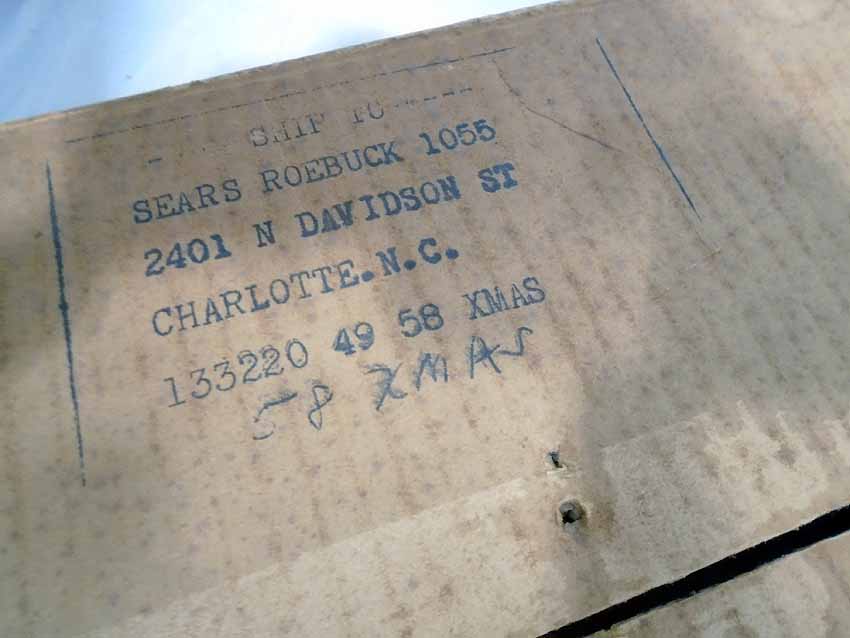 SHIP TO
SEARS ROEBUCK 1055
2401 N DAVIDSON ST
CHARLOTTE.N.C.
133220 49 58 XMAS
58 XMAS